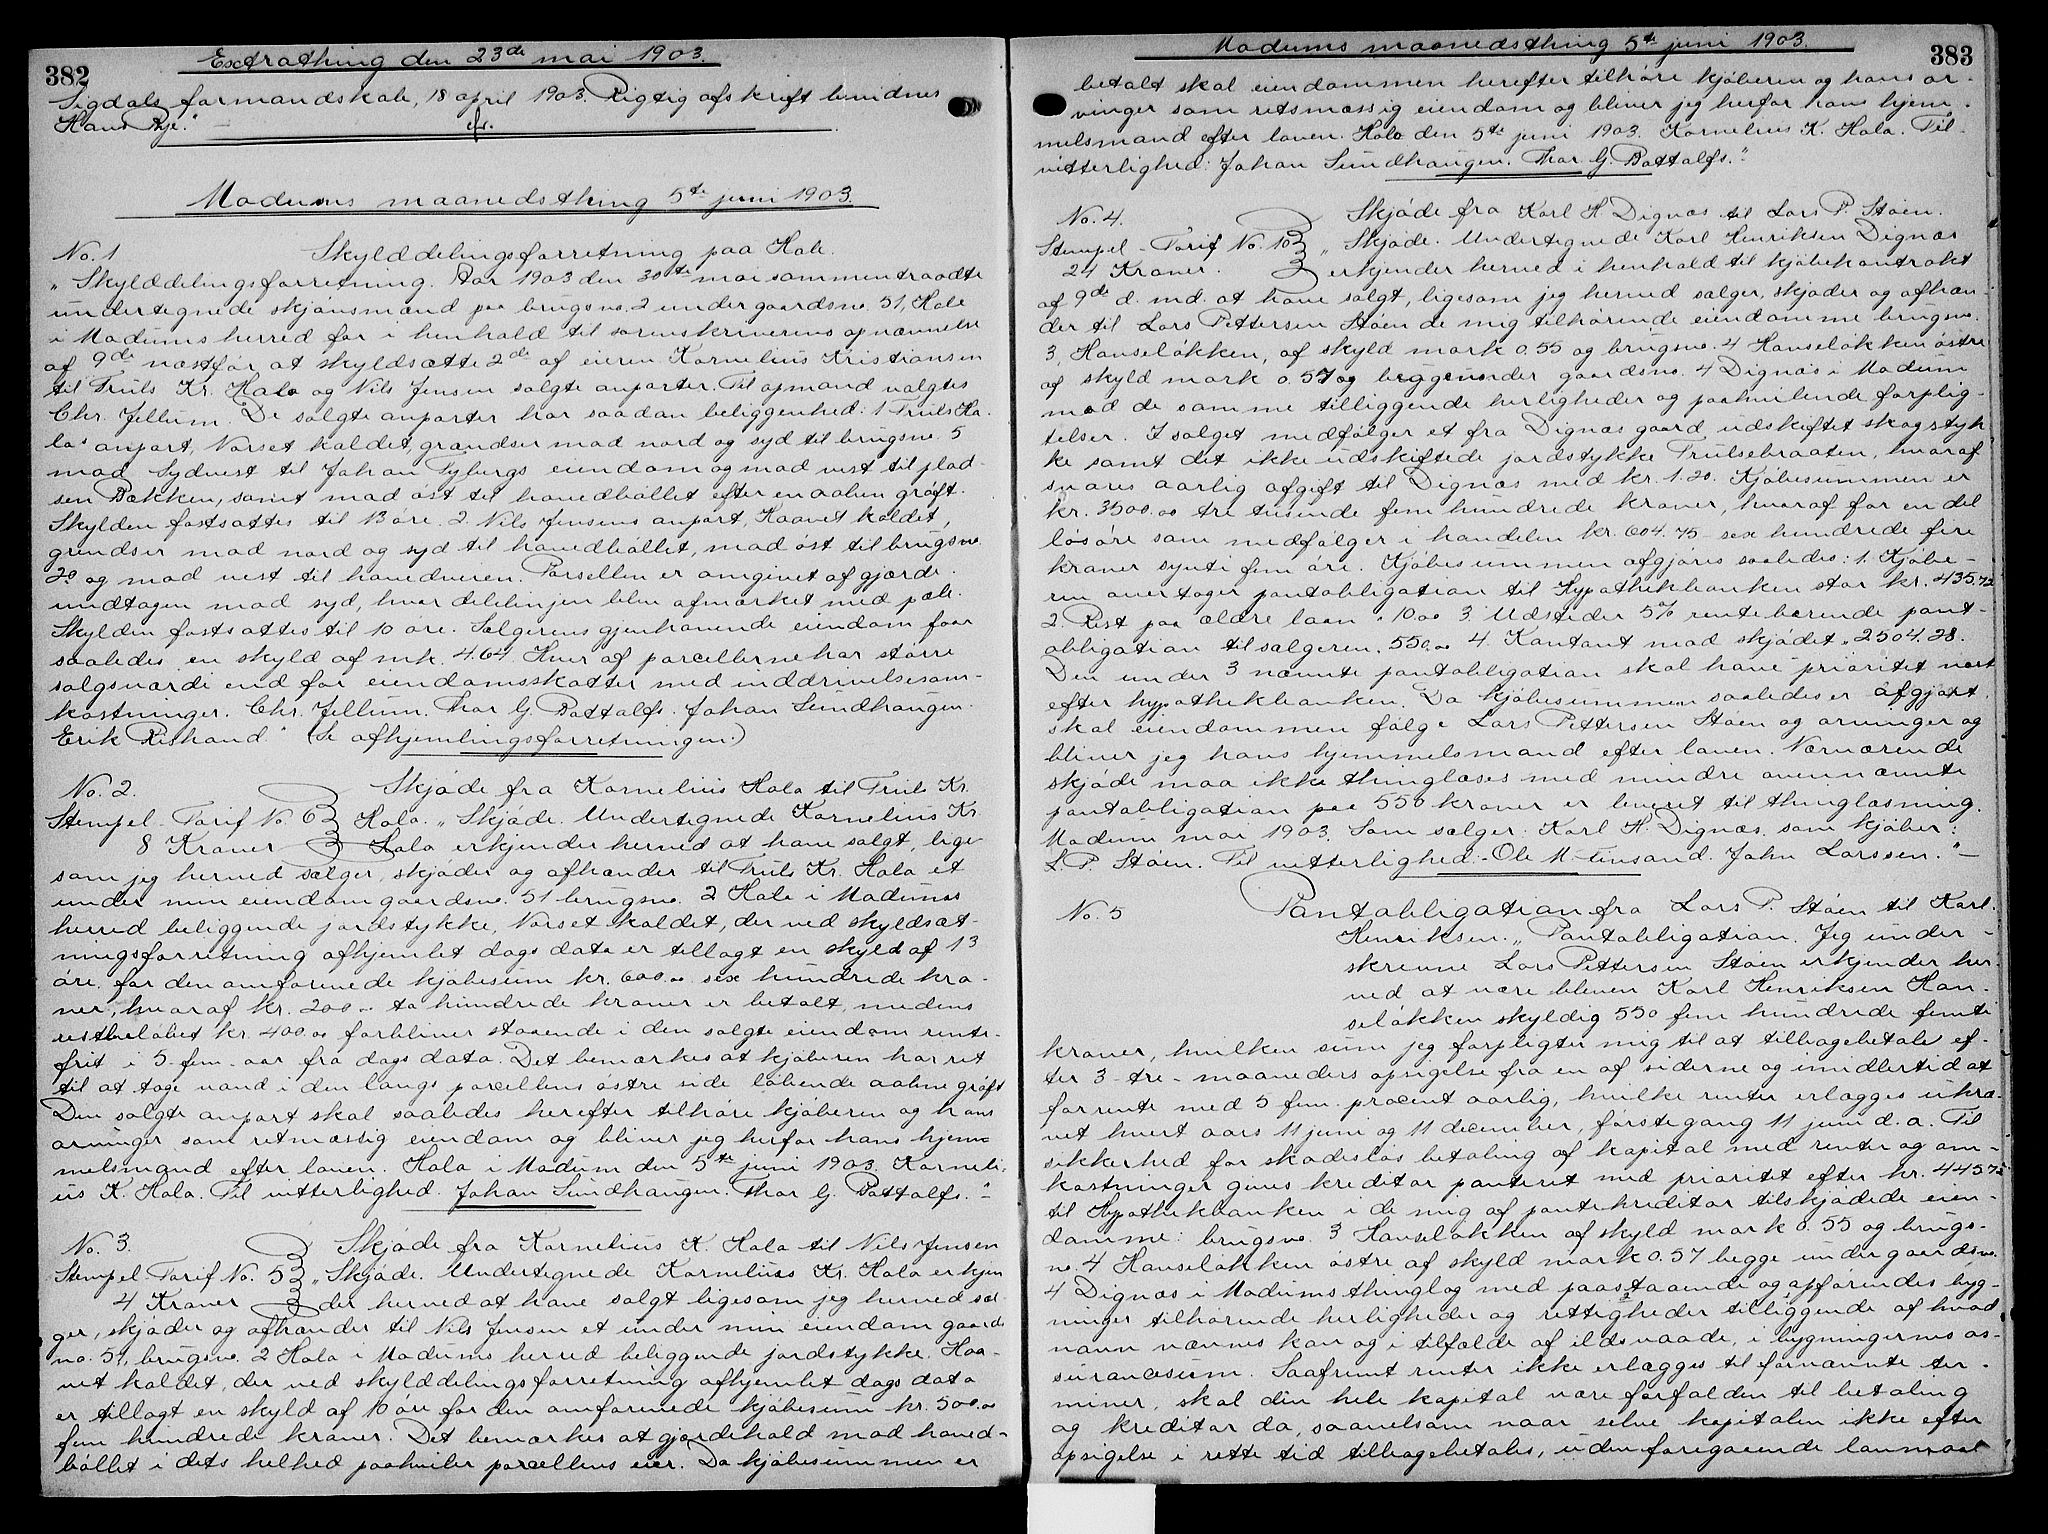 382
Extrathing den 23de mai 1903.
Sigdals formandskab, 18 april 1903. Rigtig afskrift bevidnes
Hans Bye." —
efr.
Modums maanedsthing 5te juni 1903.
No. 1 Skylddelingsforretning paa Hole.
"Skylddelingsforretning. Aar 1903 den 30te mai sammentraadte
undertegnede skjønsmænd paa brugsno. 2 under gaardsno. 51, Hole
i Modums herred for i henhold til sorenskriverens opnævnelse
af 9de næstfør at skyldsætte 2de af eieren Kornelius Kristiansen
til Truls Kr. Hola og Nils Jensen solgte anparter. Til opmand valgtes
Chr. Jellum. De solgte anparter har saadan beliggenhed: 1 Truls Ho-
las anpart, Norset kaldet, grændser mod nord og syd til brugsno. 5
mod Sydvest til Johan Tybergs eiendom og mod vest til plad-
sen Bakken, samt mod øst til hovedbøllet efter en aaben grøft.
Skylden fastsattes til 13 øre. 2. Nils Jensens anpart, Haavet kaldet,
grendser mod nord og syd til hovedbøllet, mod øst til brugsno.
20 og mod vest til hovedveien. Parsellen er omgivet af gjærde.
undtagen mod syd, hvor delelinjen blev afmærket med pæle.
Skylden fastsattes til 10 øre. Sælgerens gjenhavende eiendom faar
saaledes en skyld af mk. 4.64. Hver af parcellerne har større
salgsværdi end for eiendomsskatter med inddrivelsesom-
kostninger. Chr. Jellum. Thor G. Bottolfs. Johan Sundhaugen.
Erik Rishaud" (Se afhjemlingsforretningen.)
No. 2. Skjøde fra Kornelius Hola til Truls Kr.
Stempel-Tarif No. 6 Hola. "Skjøde. Undertegnede Kornelius Kr.
8 Kroner Hola erkjender herved at have solgt, lige-
som jeg herved sælger, skjøder og afhænder til Truls Kr. Hola et
under min eiendom gaardsno. 51 brugsno. 2 Hole i Modums
herred beliggende jordstykke, Norset kaldet, der ved skyldsæt-
ningsforretning afhjemlet dags dato er tillagt en skyld af 13
øre for den omforenede kjøbesum kr. 600.00 sex hundrede kro-
ner, hvoraf kr. 200 to hundrede kroner er betalt, medens
restbeløbet kr. 400.00 forbliver staaende i den solgte eiendom rente-
frit i 5-fem-aar fra dags dato. Det bemærkes at kjøberen har ret
til at tage vand i den langs parcellens østre side løbende aabne grøft
Den solgte anpart skal saaledes herefter tilhøre kjøberen og hans
arvinger som retmæssig eiendom og bliver jeg herfor hans hjem-
melsmand efter loven. Hola i Modum den 5te juni 1903. Korneli-
us K. Hola. Til vitterlighed. Johan Sundhaugen. Thor G. Bottolfs." —
No. 3. Skjøde fra Kornelius K. Hola til Nils Jensen
Stempel Tarif No. 5 "Skjøde. Undertegnede Kornelius Kr. Hola erkjen
4 Kroner der herved at have solgt ligesom jeg herved sæl-
ger, skjøder og afhænder til Nils Jensen et under min eiendom gaards
no. 51, brugsno. 2 Hola i Modums herred beliggende jordstykke. Haa-
vet kaldet, der ved skylddelingsforretning afhjemlet dags dato
er tillagt en skyld af 10 øre for den omforenede kjøbesum kr. 500.00
fem hundrede kroner. Det bemærkes at gjærdehold mod hoved-
bøllet i dets helhed paahviler parcellens eier. Da kjøbesummen er
Modums maanedsthing 5te juni 1903.
383
betalt skal eiendommen herefter tilhøre kjøberen og hans ar-
vinger som retsmæssig eiendom og bliver jeg herfor hans hjem-
melsmand efter loven. Hola den 5te juni 1903. Kornelius K. Hola. Til
vitterlighed: Johan Sundhaugen. Thor G. Bottolfs."
No. 4. Skjøde fra Karl H Dignæs til Lars P. Støen.
Stempel-Tarif No. 10 "Skjøde. Undertegnede Karl Henriksen Dignæs
24 Kroner. erkjender herved i henhold til kjøbekontrakt
af 9de d. md. at have solgt, ligesom jeg herved sælger, skjøder og afhæn-
der til Lars Pettersen Støen de mig tilhørende eiendomme brugsno.
3, Hanseløkken, af skyld mark 0.55 og brugsno. 4 Hanseløkken østre
af skyld mark 0.57 og begge under gaardsno. 4 Dignæs i Modum
med de samme tilliggende herligheder og paahvilende forplig-
telser. I salget medfølger et fra Dignæs gaard udskiftet skogstyk
ke samt det ikke udskiftede jordstykke Trulsebraaten, hvoraf
svares aarlig afgift til Dignæs med kr. 1.20. Kjøbesummen er
kr. 3500.00 tre tusinde fem hundrede kroner, hvoraf for en del
løsøre som medfølger i handelen kr. 604.75 sex hundrede fire
kroner sytti fem øre. Kjøbesummen afgjøres saaledes: 1. Kjøbe-
ren overtager pantobligation til Hypothekbanken stor kr. 435.72
2. Rest paa ældre laan " 10.00 3. Udsteder 5% rentebærende pant-
obligation til sælgeren. 550.00 4. Kontant mod skjødet " 2504.28.
Den under 3 nævnte pantobligation skal have prioritet næst
efter hypothekbanken. Da kjøbesummen saaledes er afgjort
skal eiendommen følge Lars Pettersen Støen og arvinger og
bliver jeg hans hjemmelsmand efter loven. Nærværende
skjøde maa ikke thinglæses med mindre ovennævnte
pantobligation paa 550 kroner er leveret til thinglæsning.
Modum, mai 1903. Som sælger: Karl H. Dignæs. som kjøber:
L. P. Støen. Til vitterlighed: Ole M. Tinsand. John Larssen." —
No. 5 Pantobligation fra Lars P. Støen til Karl.
Henriksen. "Pantobligation. Jeg under-
skrevne Lars Pettersen Støen erkjender her-
ved at være bleven Karl Henriksen Han-
seløkken skyldig 550 fem hundrede femti
kroner, hvilken sum jeg forpligter mig til at tilbagebetale ef-
ter 3-tre-maaneders opsigelse fra en af siderne og imidlertid at
forrente med 5 fem. procent aarlig, hvilke renter erlægges ukræ-
vet hvert aars 11 juni og 11 december, førstegang 11 juni d. a. Til
sikkerhed for skadesløs betaling af kapital med renter og om-
kostninger gives kreditor panteret med prioritet efter kr. 445.72
til Hypothekbanken i de mig af pantekreditor tilskjødede eien-
domme: brugsno. 3 Hanseløkken af skyld mark 0.55 og brugs-
no. 4 Hanseløkken østre af skyld mark 0.57 begge under gaardsno.
4 Dignæs i Modums thinglag med paastaaende og opførendes byg-
ninger tilhørende herligheder og rettigheder tilliggende af hvad
navn nævnes kan og i tilfælde af ildsvaade, i bygningernes as-
surancesum. Saafremt renter ikke erlægges til fornævnte ter-
miner, skal den hele kapital være forfalden til betaling
og kreditor da, saavelsom naar selve kapitalen ikke efter
opsigelse i rette tid tilbagebetales, uden foregaaende lovmaal